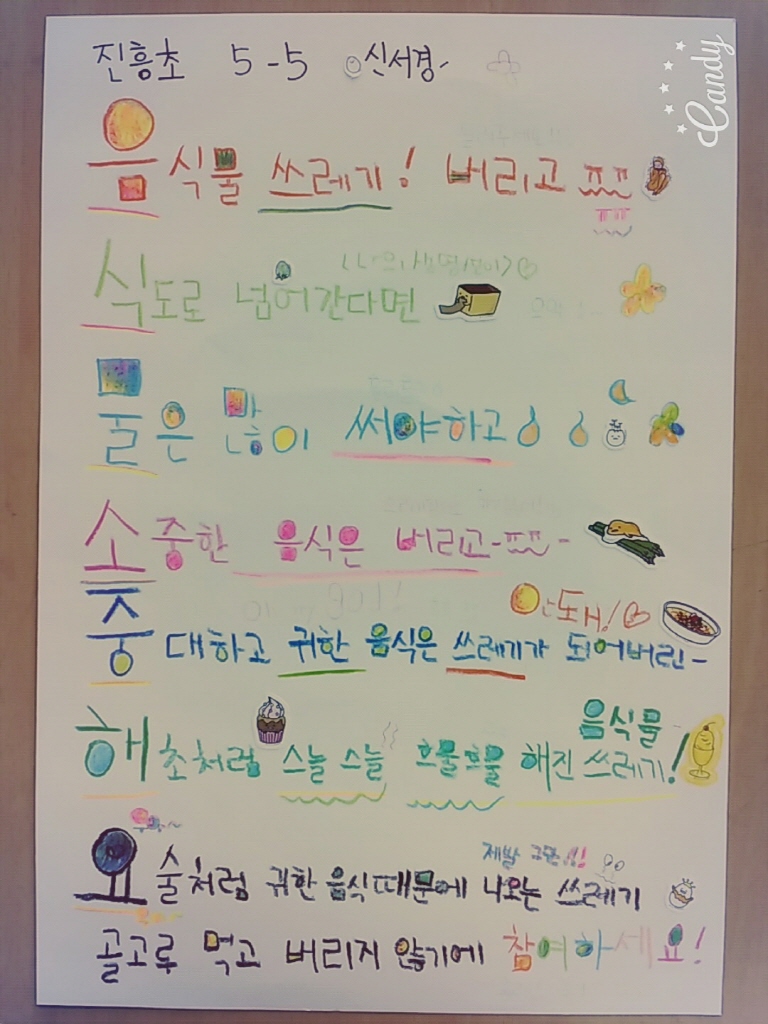 Candy
진흥초 5-5 신서경
음식물 쓰레기! 버리고 ㅠㅠ
ㅠㅠ
식도로 넘어간다면
물은 많이 써야하고
소중한 음식은 버리고-ㅠㅠ-
안돼!
중대하고 귀한 음식은 쓰레기가 되어버린-
음식물
해초처럼 스늘 스늘 흐물흐물 해진 쓰레기!
제발 그만!!
요술처럼 귀한 음식때문에 나오는 쓰레기
골고루 먹고 버리지 않기에 참여하세요!